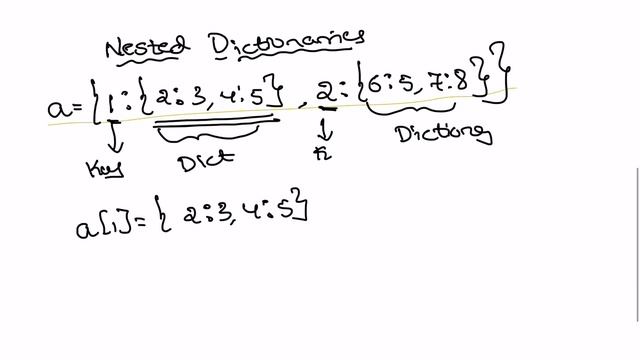 Nested Dictionaries
a={1:{2:3,4:5}, 2:{6:5,7:8}}
Key Dict k Dictiong
a[1]={2:3,4:5}